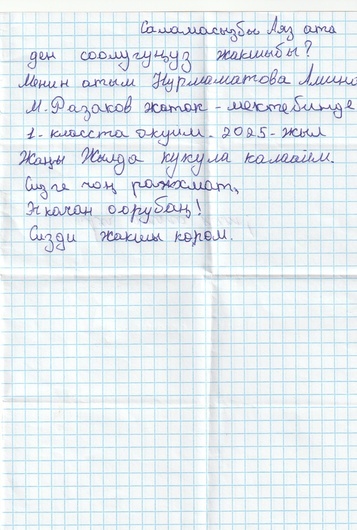 Саламасызбы Аяз ата
ден соолугуңуз жакшыбы?
Менин атым Нурмаматова Амина
М. Разаков жатак - мектебинде
1- класста окуим. 2025- жыл
Жаңы Жылда кукула каалайм.
Сизге чоң ражхмат,
Эч качан оорубаң!
Сизди жакшы кором.